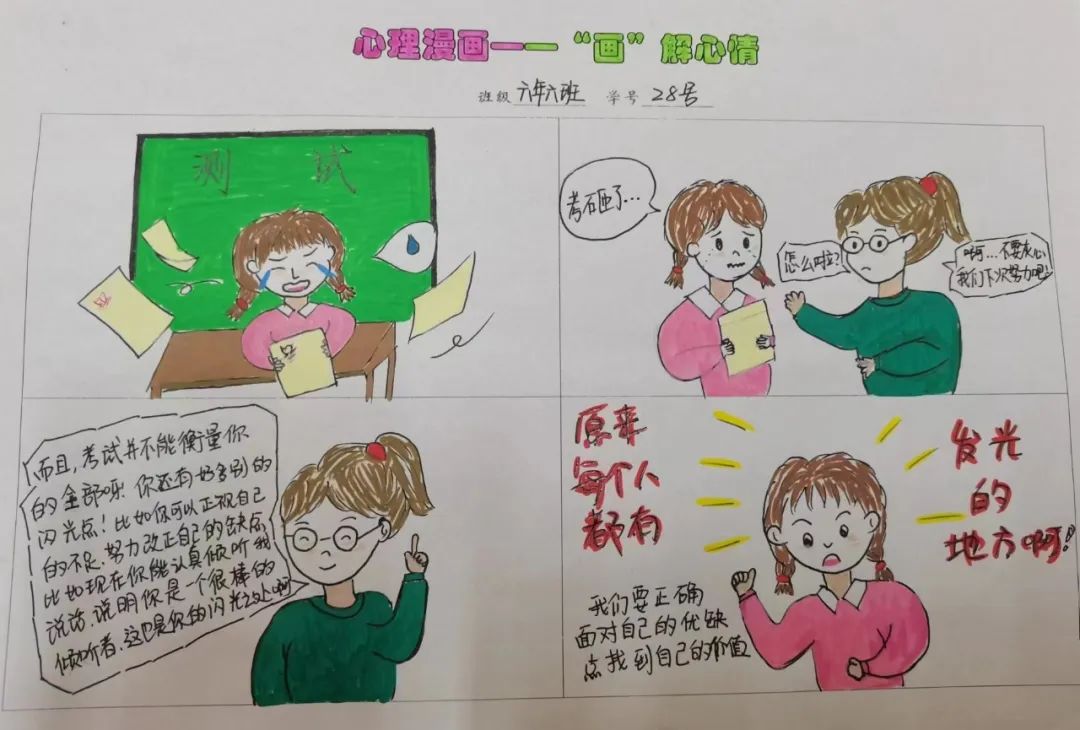 心理漫画——“画”解心情
班级 六年六班 学号 28号
测 试
考砸了…
怎么啦?
啊…不要灰心
我们下次努力吧!
而且,考试并不能衡量你
的全部呀!你还有好多别的
闪光点!比如你可以正视自己
的不足,努力改正自己的缺点,
比如现在你能认真倾听我
说话,说明你是一个很棒的
倾听者,这也是你的闪光之处啊
原来
每个人
都有
发光
的
地方啊!
我们要正确
面对自己的优缺
点找到自己的价值